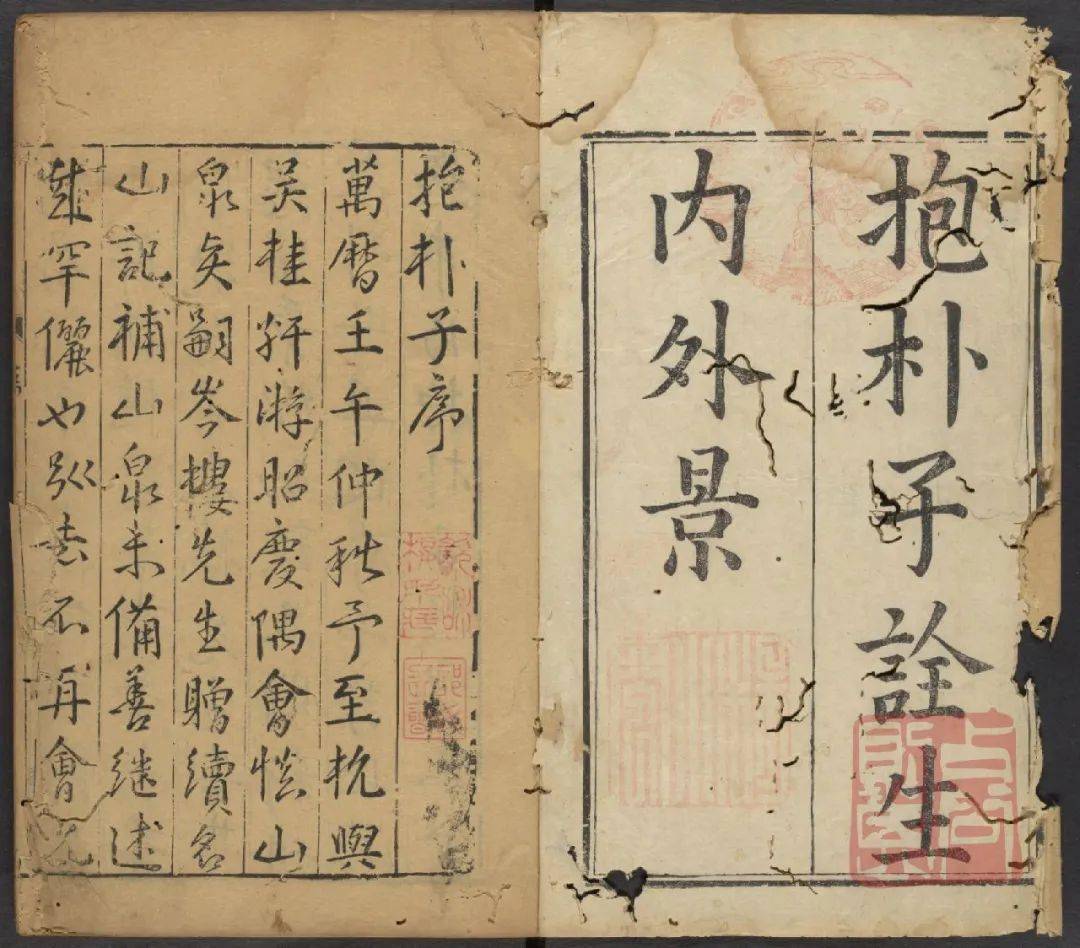 抱朴子詮生
内外景
抱朴子序
萬曆壬午仲秋予至杭與
吴桂軒游昭慶隅會山
泉嗣岑樓先生贈續名
山記補山泉未備善繼述
罕儷也再會